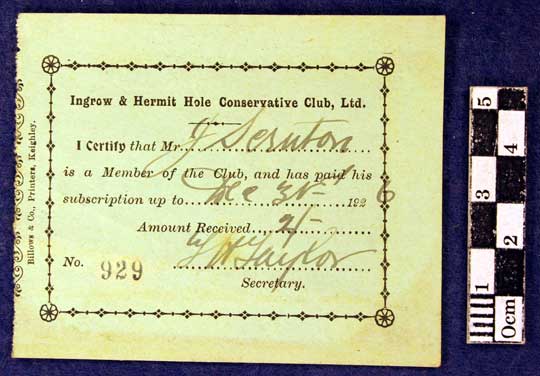 Ingrow & Hermit Hole Conservative Club, Ltd.
I Certify that Mr. J Scruton
is a Member of the Club, and has paid his
subscription up to Dec 31st 1926
Amount Received 2/-
No. 929 Taylor
Secretary.
Billows & Co., Printers, Keighley.
5
4
3
2
1
0cm